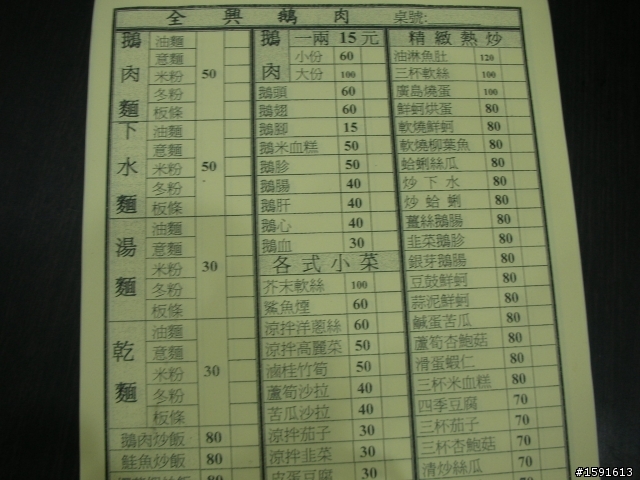 全興鵝肉 桌號:
鵝肉麵 50
油麵
意麵
米粉
冬粉
板條
下水麵 50
油麵
意麵
米粉
冬粉
板條
湯麵 30
油麵
意麵
米粉
冬粉
板條
乾麵 30
油麵
意麵
米粉
冬粉
板條
鵝肉炒飯 80
鮭魚炒飯 80
鵝肉 一兩 15元
小份 60
大份 100
鵝頭 60
鵝翅 60
鵝腳 15
鵝米血糕 50
鵝胗 50
鵝腸 40
鵝肝 40
鵝心 40
鵝血 30
各式小菜
芥末軟絲 100
鯊魚煙 60
涼拌洋蔥絲 60
涼拌高麗菜 50
滷桂竹筍 50
蘆筍沙拉 40
苦瓜沙拉 40
涼拌茄子 30
涼拌韭菜 30
皮蛋豆腐 30
精緻熱炒
油淋魚肚 120
三杯軟絲 100
廣島燒蛋 100
鮮蚵烘蛋 80
軟燒鮮蚵 80
軟燒柳葉魚 80
蛤蜊絲瓜 80
炒下水 80
炒蛤蜊 80
薑絲鵝腸 80
韭菜鵝胗 80
銀芽鵝腸 80
豆鼓鮮蚵 80
蒜泥鮮蚵 80
鹹蛋苦瓜 80
蘆筍杏鮑菇 80
滑蛋蝦仁 80
三杯米血糕 80
四季豆腐 70
三杯茄子 70
三杯杏鮑菇 70
清炒絲瓜 70
#1591613